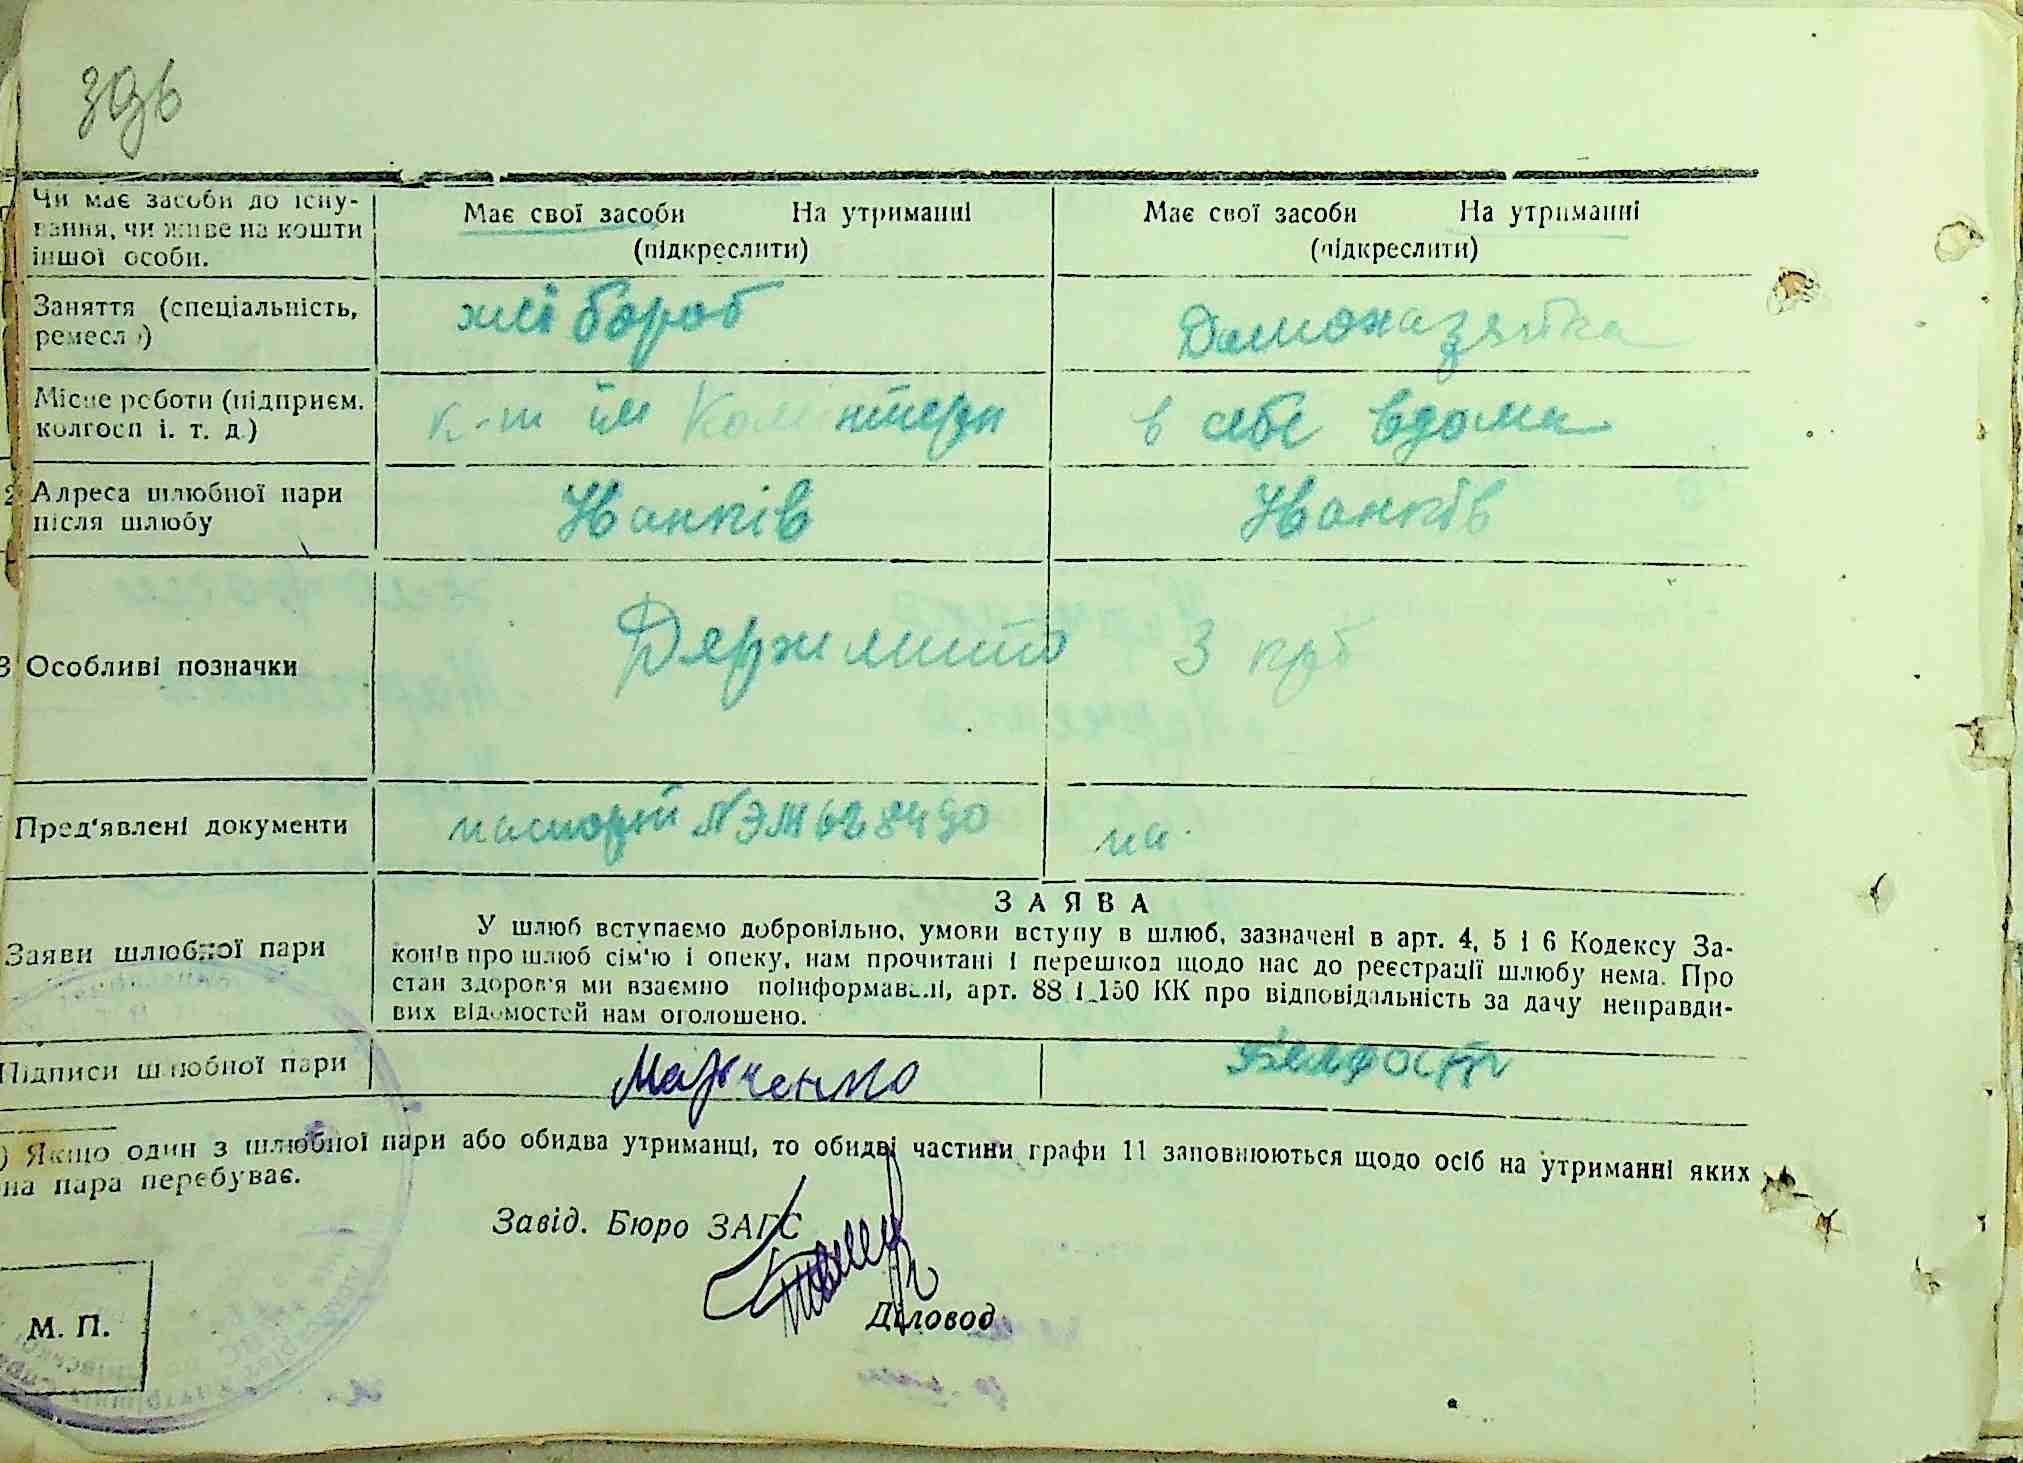 Чи має засоби до існу-
вання, чи живе на кошти
іншої особи.
Має свої засоби На утриманні
(підкреслити)
Має свої засоби На утриманні
(підкреслити)
Заняття (спеціальність,
ремесло)
хлібороб
Домохазяйка
Місце роботи (підприєм.
колгосп і. т. д.)
к-т ім Комінтерн
в себе вдома
2 Адреса шлюбної пари
після шлюбу
Іванків
Іванків
3 Особливі позначки
Держмито 3 крб
Пред'явлені документи
паспорт
Заяви шлюбної пари
ЗАЯВА
У шлюб вступаємо добровільно, умови вступу в шлюб, зазначені в арт. 4, 5 і 6 Кодексу За-
конів про шлюб сім'ю і опеку, нам прочитані і перешкод щодо нас до реєстрації шлюбу нема. Про
стан здоров'я ми взаємно поінформавані, арт. 88 і 150 КК про відповідальність за дачу неправди-
вих відомостей нам оголошено.
Підписи шлюбної пари
Марченко
) Якщо один з шлюбної пари або обидва утриманці, то обидві частини графи 11 заповнюються щодо осіб на утриманні яких
на пара перебуває.
Завід. Бюро ЗАГС
Діловод
М. П.